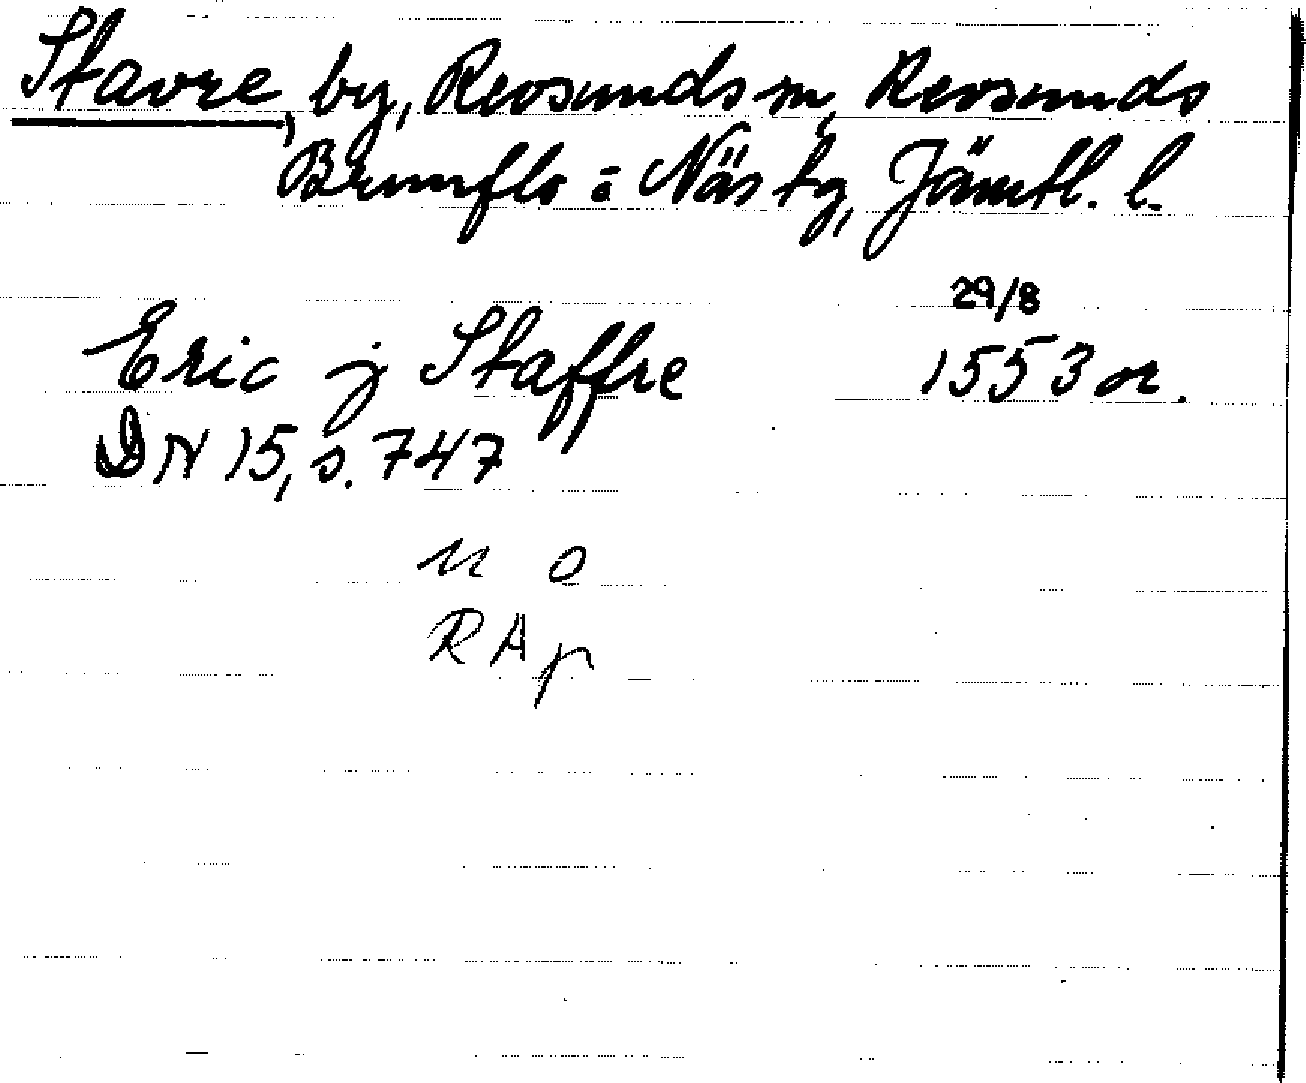 Stavre, by, Revsunds sn, Revsunds
Brunflo o Näs tg, Jämtl. l.
29/8
Eric j Staffre 1553 or.
DN 15, s. 747
n o
RAp